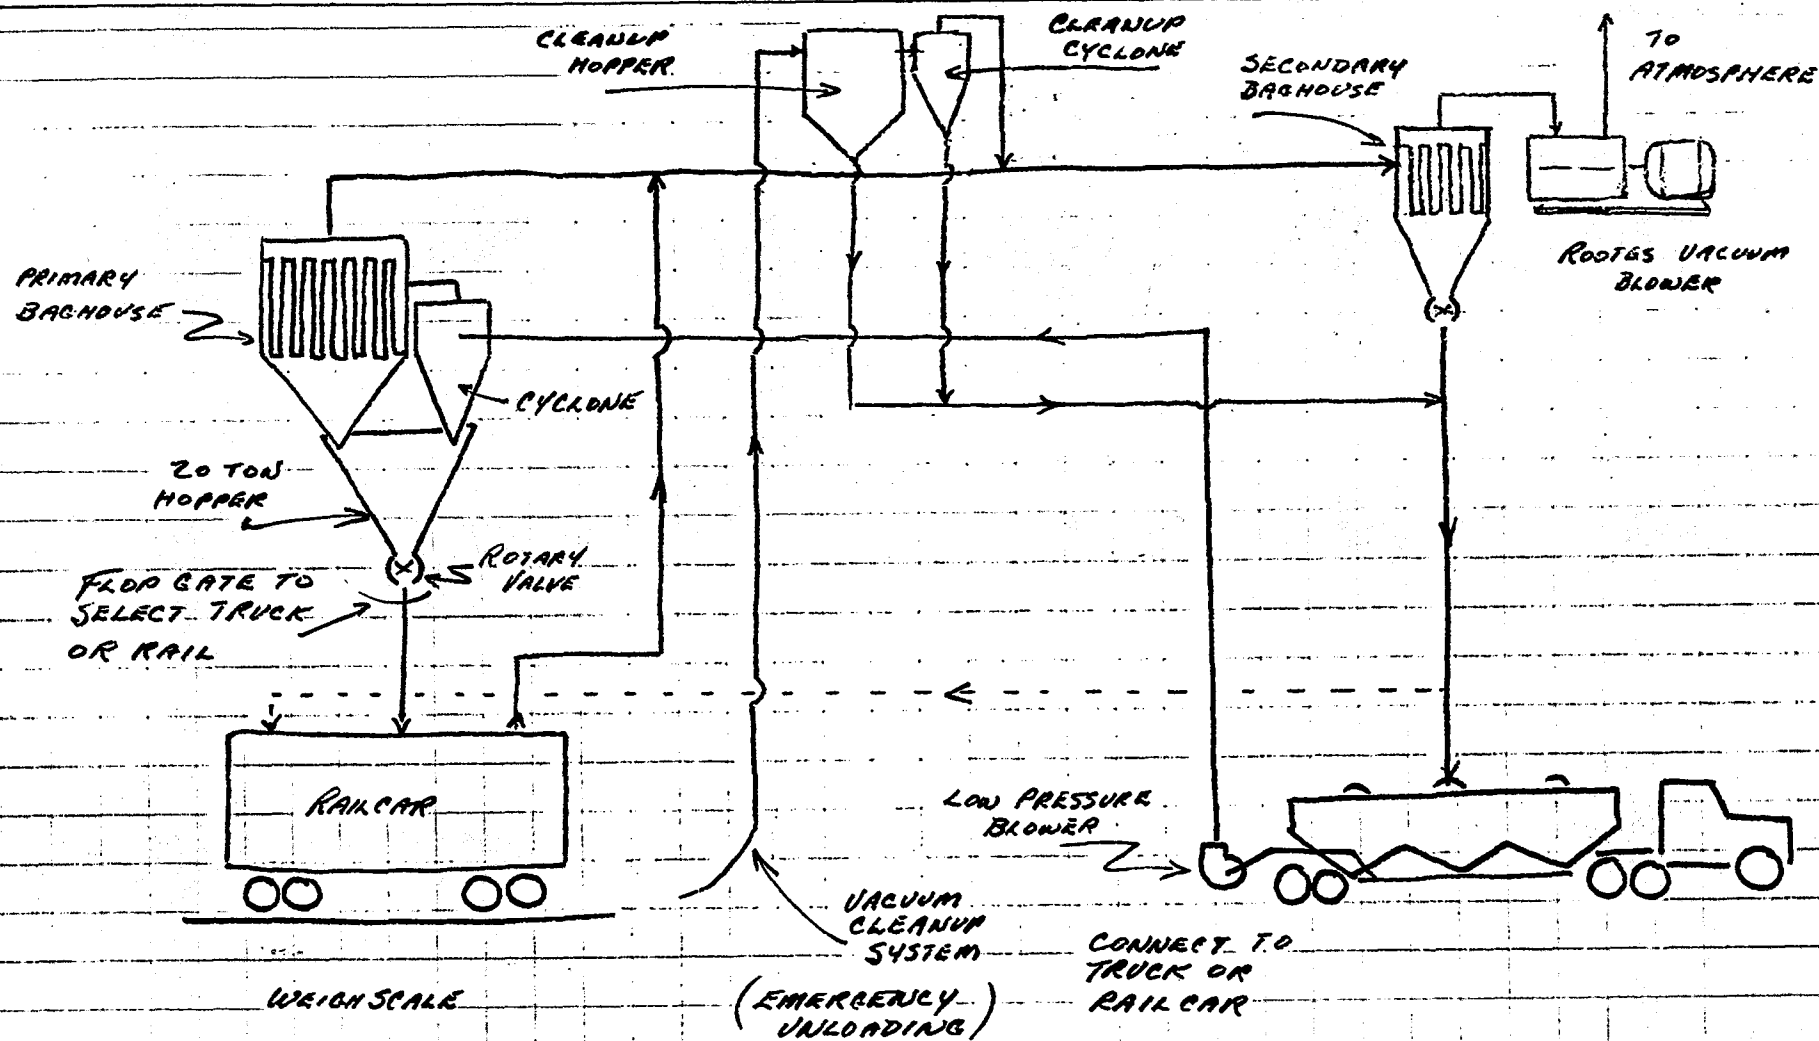 CLEANUP
HOPPER
CLEANUP
CYCLONE
SECONDARY
BAGHOUSE
TO
ATMOSPHERE
ROOTES VACUUM
BLOWER
PRIMARY
BAGHOUSE
CYCLONE
20 TON
HOPPER
ROTARY
VALVE
FLOP GATE TO
SELECT TRUCK
OR RAIL
RAILCAR
LOW PRESSURE
BLOWER
VACUUM
CLEANUP
SYSTEM
(EMERGENCY
UNLOADING)
CONNECT TO
TRUCK OR
RAILCAR
WEIGH SCALE